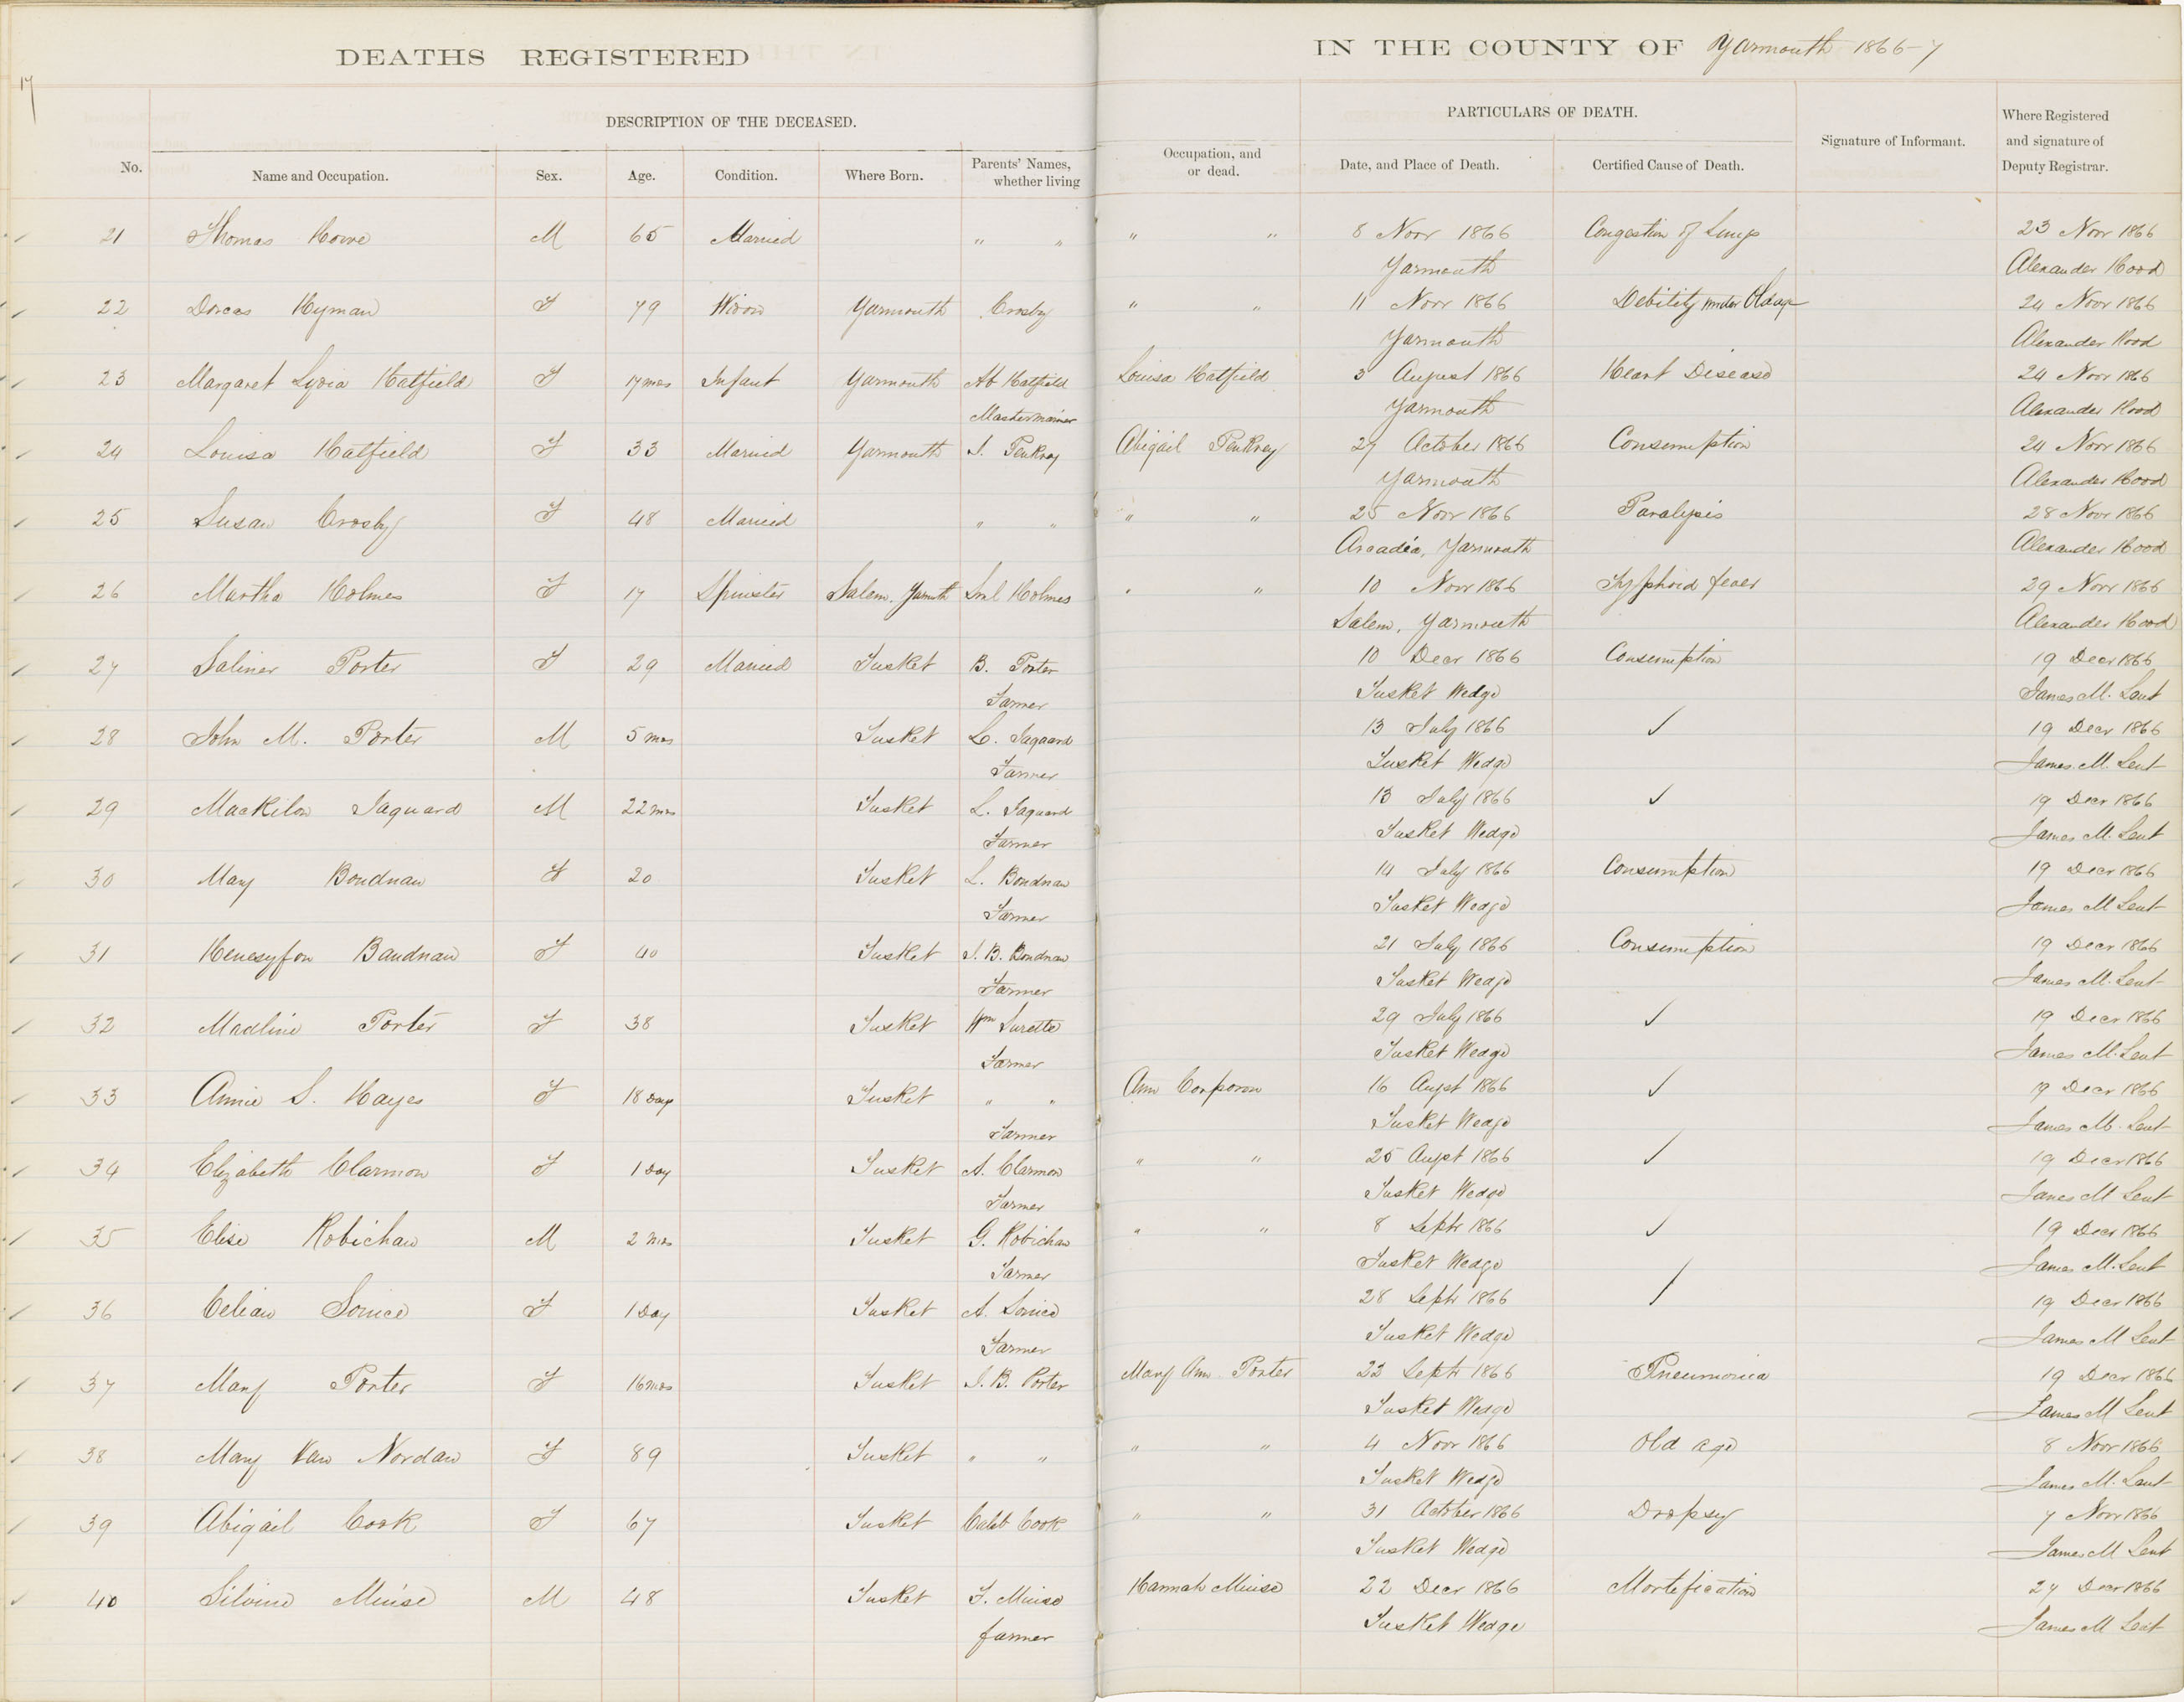 DEATHS REGISTERED
IN THE COUNTY OF Yarmouth 1866-7
17
DESCRIPTION OF THE DECEASED.
PARTICULARS OF DEATH.
No.
Name and Occupation.
Sex.
Age.
Condition.
Where Born.
Parents' Names, whether living
Occupation, and or dead.
Date, and Place of Death.
Certified Cause of Death.
Signature of Informant.
Where Registered and signature of Deputy Registrar.
21 Thomas Howe M 65 Married " " " " 8 Novr 1866 Congestion of Lungs 23 Novr 1866
Yarmouth Alexander Hood
22 Dorcas Hyman F 79 Widow Yarmouth Crosby " " 11 Novr 1866 Debility under Old age 24 Novr 1866
Yarmouth Alexander Hood
23 Margaret Lydia Hatfield F 17 mos Infant Yarmouth Ab Hatfield Louisa Hatfield 3 August 1866 Heart Disease 24 Novr 1866
Master mariner Yarmouth Alexander Hood
24 Louisa Hatfield F 33 Married Yarmouth J. Penkney Abigail Penkney 27 October 1866 Consumption 24 Novr 1866
Yarmouth Alexander Hood
25 Susan Crosby F 48 Married " " " " 25 Novr 1866 Paralysis 28 Novr 1866
Arcadia, Yarmouth Alexander Hood
26 Martha Holmes F 17 Spinster Salem. Yarmth Sml Holmes " " 10 Novr 1866 Typhoid fever 29 Novr 1866
Salem, Yarmouth Alexander Hood
27 Saliner Porter F 29 Married Tusket B. Porter 10 Decr 1866 Consumption 19 Decr 1866
Farmer Tusket Wedge James M. Lent
28 John M. Porter M 5 mos Tusket L. Jaquard 13 July 1866 ✓ 19 Decr 1866
Farmer Tusket Wedge James M. Lent
29 Mackilon Jaquard M 22 mos Tusket L. Jaquard 13 July 1866 ✓ 19 Decr 1866
Farmer Tusket Wedge James M. Lent
30 Mary Boudnau F 20 Tusket L. Boudnau 14 July 1866 Consumption 19 Decr 1866
Farmer Tusket Wedge James M Lent
31 Baudnau F 40 Tusket J. B. Boudnau 21 July 1866 Consumption 19 Decr 1866
Farmer Tusket Wedge James M. Lent
32 Madline Porter F 38 Tusket Wm Surette 29 July 1866 ✓ 19 Decr 1866
Farmer Tusket Wedge James M. Lent
33 Annie S. Hayes F 18 Days Tusket " " Ann Corporon 16 Augst 1866 ✓ 19 Decr 1866
Farmer Tusket Wedge James M. Lent
34 Elizabeth Clarmon F 1 Day Tusket A. Clarmon " " 25 Augst 1866 ✓ 19 Decr 1866
Farmer Tusket Wedge James M Lent
35 Elise Robichau M 2 mos Tusket G. Robichau " " 8 Septr 1866 ✓ 19 Decr 1866
Farmer Tusket Wedge James M. Lent
36 Celian F 1 Day Tusket A. 28 Septr 1866 / 19 Decr 1866
Farmer Tusket Wedge James M Lent
37 Mary Porter F 16 mos Tusket J. B. Porter Mary Ann Porter 22 Septr 1866 Pneumonia 19 Decr 1866
Tusket Wedge James M Lent
38 Mary Van Nordan F 89 Tusket " " " " 4 Novr 1866 Old age 8 Novr 1866
Tusket Wedge James M. Lent
39 Abigail Cook F 67 Tusket Caleb Cook " " 31 October 1866 Dropsy 7 Novr 1866
Tusket Wedge James M Lent
40 Silvine Minise M 48 Tusket F. Minise Hannah Minise 22 Decr 1866 Mortification 27 Decr 1866
farmer Tusket Wedge James M Lent